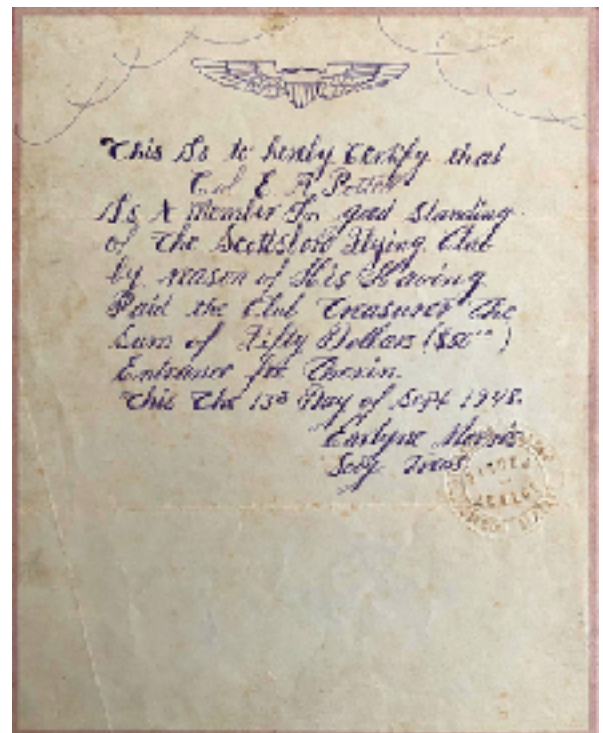 This Is to herby Certify that
Col E. A. Potter
Is A Member In good Standing
of The Scottsboro Flying Club
by reason of His Having
Paid the Club Treasurer The
Sum of Fifty Dollars ($50⁰⁰)
Entrance fee Therin.
This The 13th Day of Sept 1948.
Morris
Secy Treas